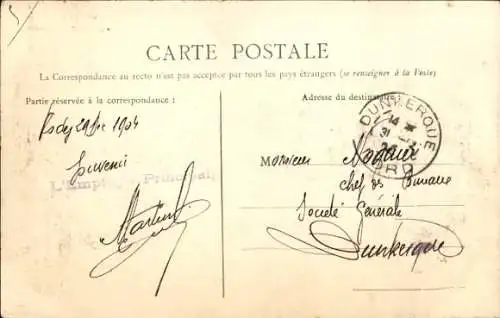 CARTE POSTALE
La Correspondance au recto n'est pas acceptée par tous les pays étrangers (se renseigner à la Poste)
Partie réservée à la correspondance :
Adresse du destinataire :
1904
Souvenir
L'Emp Principal
DUNKERQUE
14
31
NORD
Monsieur
Chef de Bureau
Société Générale
Dunkerque